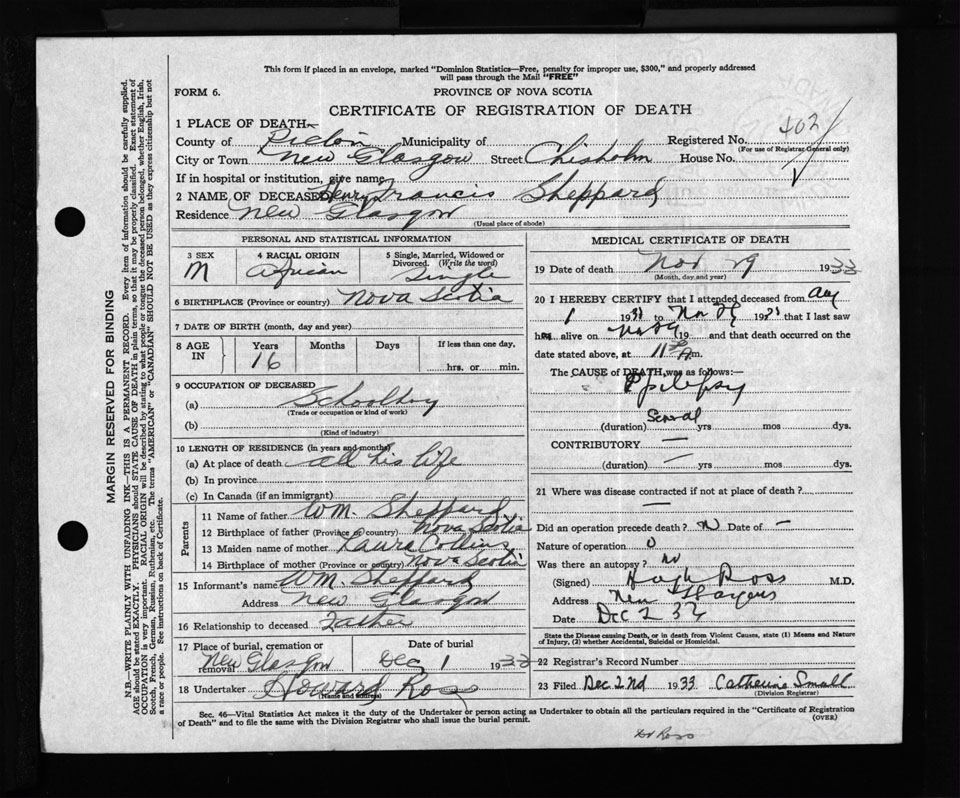 This form if placed in an envelope, marked "Dominion Statistics—Free, penalty for improper use, $300," and properly addressed
will pass through the Mail "FREE"
FORM 6.
PROVINCE OF NOVA SCOTIA
CERTIFICATE OF REGISTRATION OF DEATH
1 PLACE OF DEATH—
County of Pictou Municipality of Registered No. 402
(For use of Registrar General only)
City or Town New Glasgow Street Chisholm House No.
If in hospital or institution, give name
2 NAME OF DECEASED Henry Francis Sheppard
Residence New Glasgow
(Usual place of abode)
PERSONAL AND STATISTICAL INFORMATION
3 SEX M
4 RACIAL ORIGIN African
5 Single, Married, Widowed or Divorced. (Write the word) Single
6 BIRTHPLACE (Province or country) Nova Scotia
7 DATE OF BIRTH (month, day and year)
8 AGE IN Years Months Days If less than one day,
16 hrs. or min.
9 OCCUPATION OF DECEASED
(a) Schoolboy
(Trade or occupation or kind of work)
(b)
(Kind of industry)
10 LENGTH OF RESIDENCE (in years and months)
(a) At place of death all his life
(b) In province
(c) In Canada (if an immigrant)
Parents
11 Name of father Wm. Sheppard
12 Birthplace of father (Province or country) Nova Scotia
13 Maiden name of mother Laura Collins
14 Birthplace of mother (Province or country) Nova Scotia
15 Informant's name Wm. Sheppard
Address New Glasgow
16 Relationship to deceased Father
17 Place of burial, cremation or removal New Glasgow
Date of burial Dec 1 1933
18 Undertaker Howard Ross
(Name and address)
MEDICAL CERTIFICATE OF DEATH
19 Date of death Nov 29 1933
(Month, day and year)
20 I HEREBY CERTIFY that I attended deceased from Aug
1 19 to Nov 29 19 that I last saw
h alive on Nov 29 19 and that death occurred on the
date stated above, at 11 m.
The CAUSE OF DEATH was as follows:—
Epilepsy
(duration) Several yrs mos dys.
CONTRIBUTORY —
(duration) — yrs mos dys.
21 Where was disease contracted if not at place of death?
—
Did an operation precede death? N Date of —
Nature of operation 0
Was there an autopsy? No
(Signed) Hugh Ross M.D.
Address New Glasgow
Date Dec 2
State the Disease causing Death, or in death from Violent Causes, state (1) Means and Nature
of Injury, (2) whether Accidental, Suicidal or Homicidal.
22 Registrar's Record Number
23 Filed Dec 2nd 1933 Catherine Small
(Division Registrar)
Sec. 46—Vital Statistics Act makes it the duty of the Undertaker or person acting as Undertaker to obtain all the particulars required in the "Certificate of Registration
of Death" and to file the same with the Division Registrar who shall issue the burial permit.
(OVER)
Dr Ross
MARGIN RESERVED FOR BINDING
N.B.—WRITE PLAINLY WITH UNFADING INK—THIS IS A PERMANENT RECORD. Every item of information should be carefully supplied.
AGE should be stated EXACTLY. PHYSICIANS should STATE CAUSE OF DEATH in plain terms, so that it may be properly classified. Exact statement of
OCCUPATION is very important. RACIAL ORIGIN will be described by stating to what people or tongue the deceased person belonged, whether English, Irish,
Scotch, French, German, Russian, Ruthenian, etc. The terms "AMERICAN" or "CANADIAN" SHOULD NOT BE USED as they express citizenship but not
a race or people. See instructions on back of Certificate.